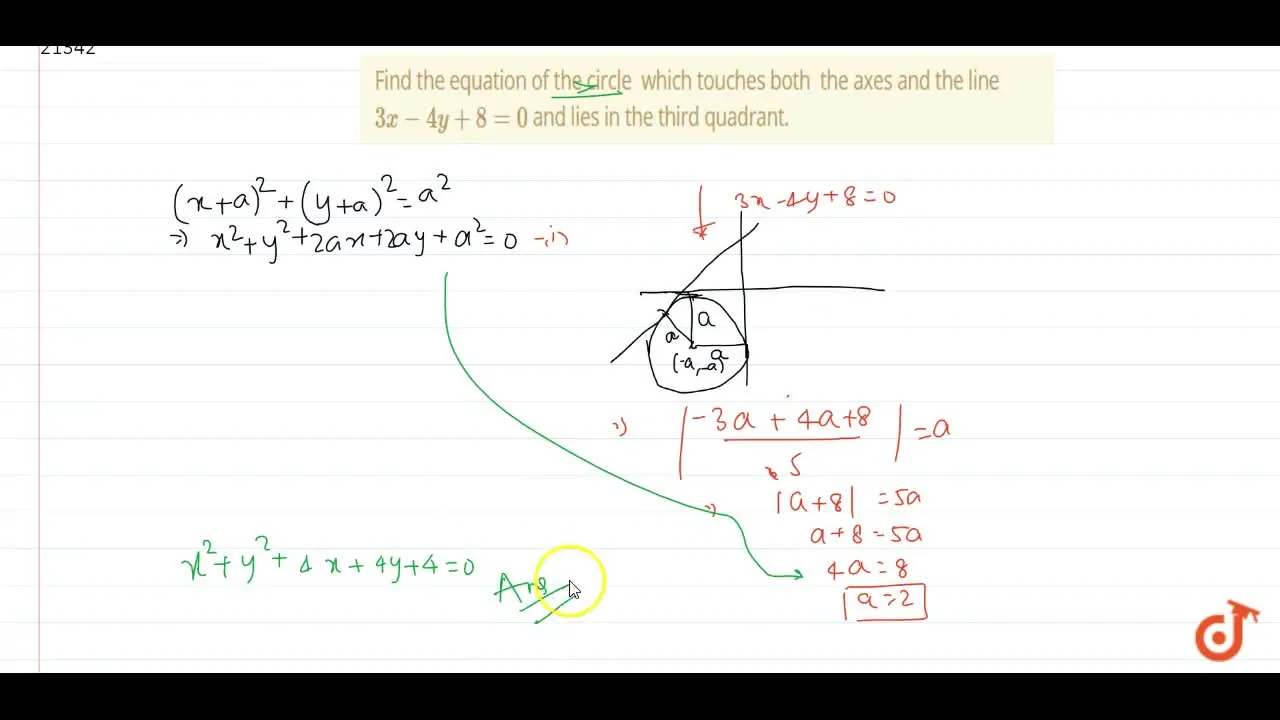 21342
Find the equation of the circle which touches both the axes and the line
3x − 4y + 8 = 0 and lies in the third quadrant.
(x+a)² + (y+a)² = a²
⇒ x² + y² + 2ax + 2ay + a² = 0 –(i)
3x - 4y + 8 = 0
a
a
a
(-a, -a)
⇒ |(-3a + 4a + 8)/5| = a
⇒ |a+8| = 5a
a + 8 = 5a
4a = 8
a = 2
x² + y² + 4x + 4y + 4 = 0
Ans